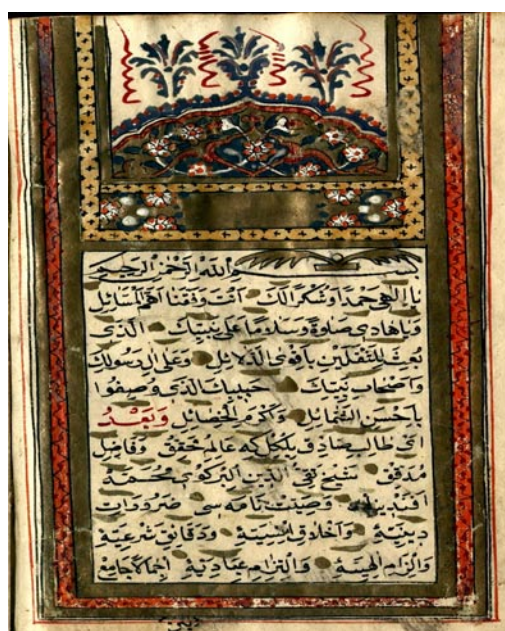 بسم الله الرحمن الرحيم
يا إلهي حمدا وشكرا لك أنت وفقنا أهم المسائل
ويا هادي صلوة وسلاما على نبيك الذي
بعث للثقلين بأقوى الدلائل وعلى آل رسولك
وأصحاب نبيك حبيبك الذي وصفوا
بأحسن الشمائل وكرم الخصائل وبعد
اي طالب صادق بلكل كه عالم محقق وفاضل
مدقق شيخ تقي الدين البركوي محمد
افندينك وصيت نامه سي ضرورات
دينية وأخلاق سنية ودقايق شرعية
والزام الهية والتزام عبادتية اجمالا جامع